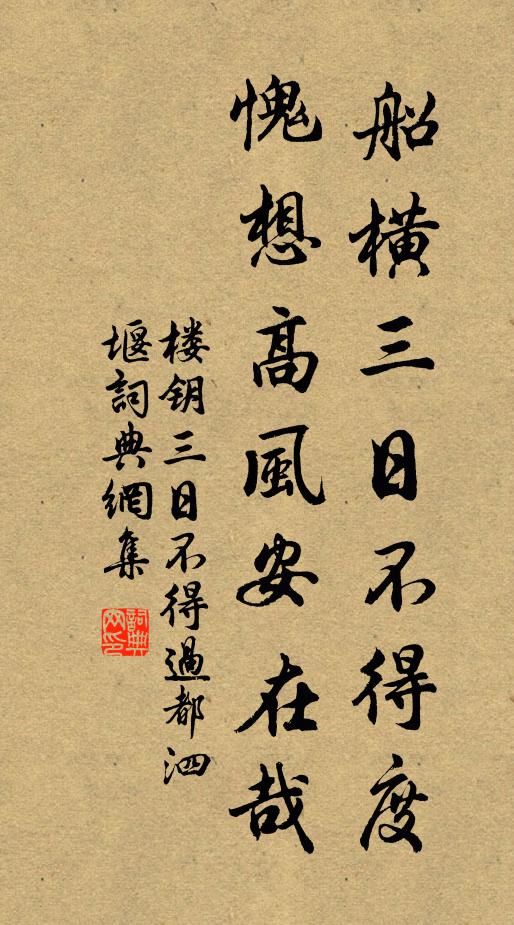 船橫三日不得度
愧想高風安在哉
楼钥三日不得過都泗
堰詞典網集
詞典
网印